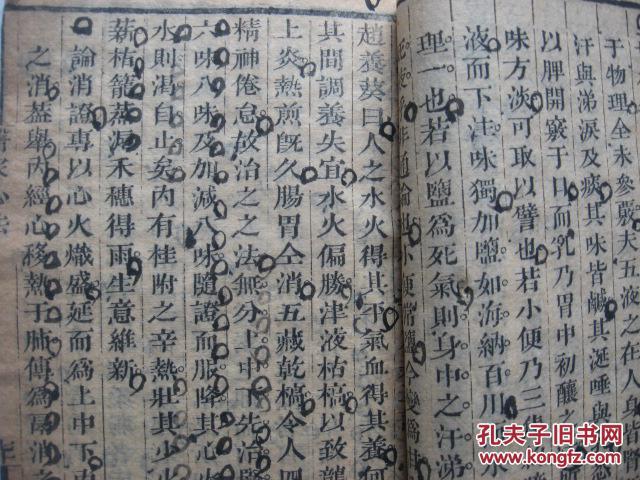 于物理全未參蓛夫五液之在人身皆腎
汗與涕淚及痰其味皆鹹其涎唾與
以脾開竅于口而乳乃胃中初釀之
味方淡可取以譬也若小便乃三焦
液而下注味獨加鹽如海納百川水
理一也若以鹽爲死氣則身中之汗涕
通論出小便常鹽今變爲甘
趙養葵曰人之水火得其平氣血得其養何
其間調養失宜水火偏勝津液枯槁以致龍
上炎熱煎旣久腸胃仝消五藏乾槁令人四
精神倦怠故治之之法無分上中下先治腎
六味八味及加減八味隨證而服降其心火
水則渴自止矣內有桂附之辛熱壯其少火
薪枯籠蒸溽禾穗得雨生意維新
論消證專以心火熾盛延而爲上中下
之消蓋舉內經心移熱于肺傳爲鬲消之
孔夫子旧书网
www.kongfz.com